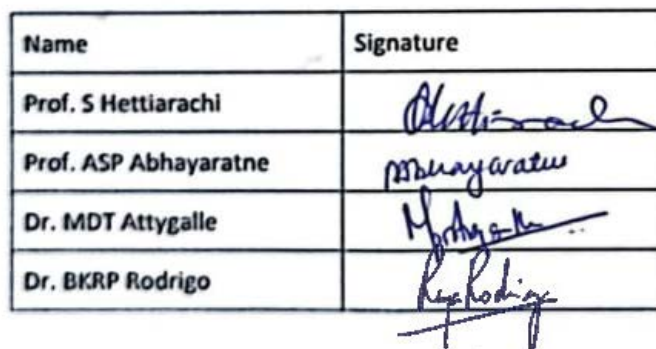 Name Signature
Prof. S Hettiarachi
Prof. ASP Abhayaratne
Dr. MDT Attygalle
Dr. BKRP Rodrigo